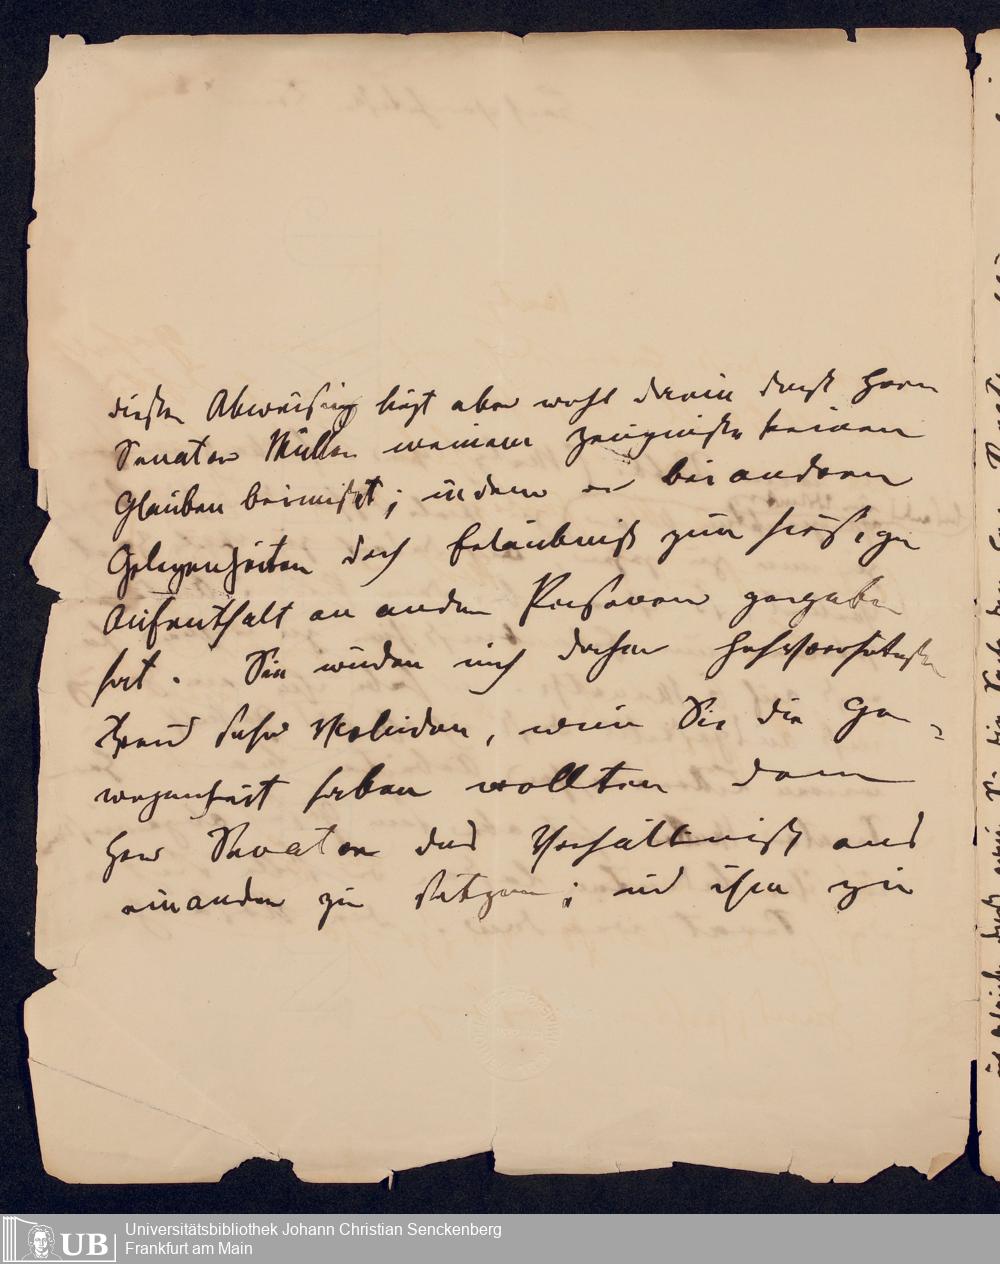 dieser Abweisung liegt aber wohl darin daß Herr
Senator Müller meinem Zeugnisse keinen
Glauben beimißt; indem er bei anderen
Gelegenheiten doch Erlaubniß zum hiesigen
Aufenthalt an andere Personen gegeben
hat. Sie würden mich daher hochverehrtester
Freund sehr verbinden, wenn Sie die Ge=
wogenheit haben wollten dem
Herr Senator das Verhältniß aus
einander zu setzen; und ihm zu
Universitätsbibliothek Johann Christian Senckenberg
Frankfurt am Main
UB